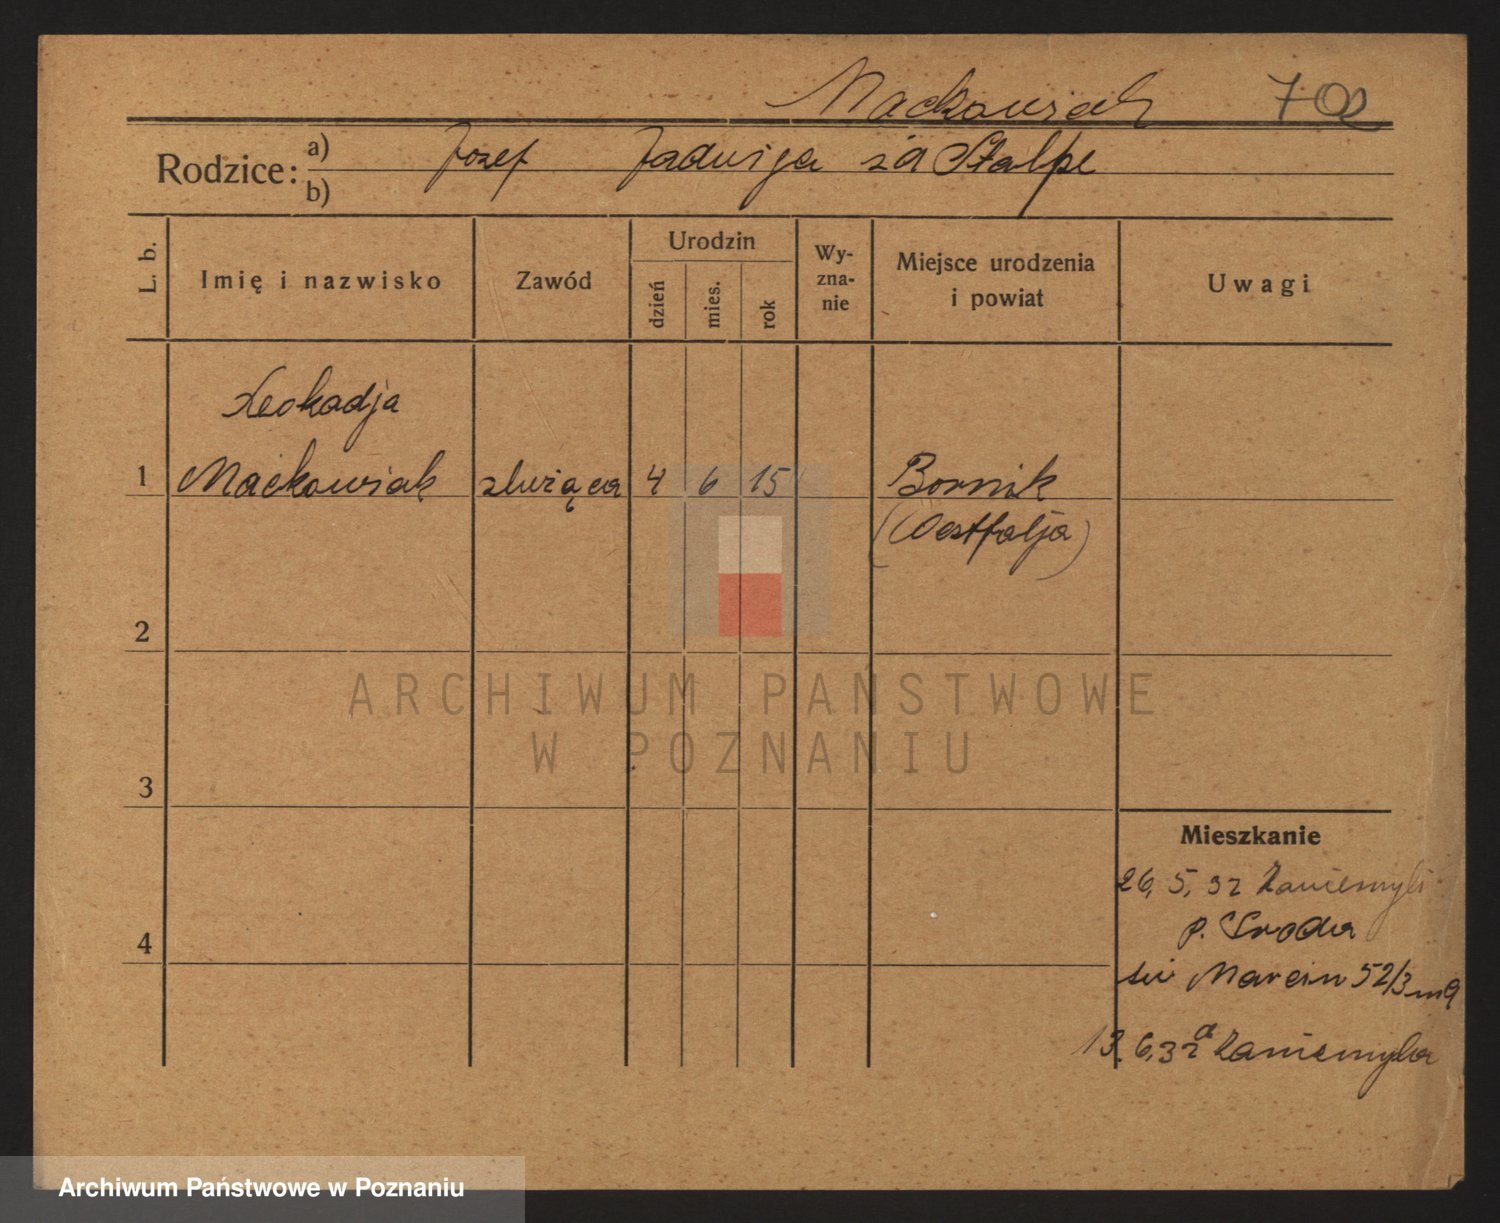 Mackowiak 702
Rodzice: a) Jozef Jadwiga zd Stalpe
b)
L. b. Imię i nazwisko Zawód Urodzin dzień mies. rok Wyznanie Miejsce urodzenia i powiat Uwagi
Leokadja
1 Maćkowiak służąca 4 6 15 Bornik
(Westfalja)
2
3
Mieszkanie
26. 5. 32 Zaniemyśl
p. Sroda
4
św Marcin 52/3 m9
13. 6. 32 Zaniemyśla
ARCHIWUM PAŃSTWOWE
W POZNANIU
Archiwum Państwowe w Poznaniu